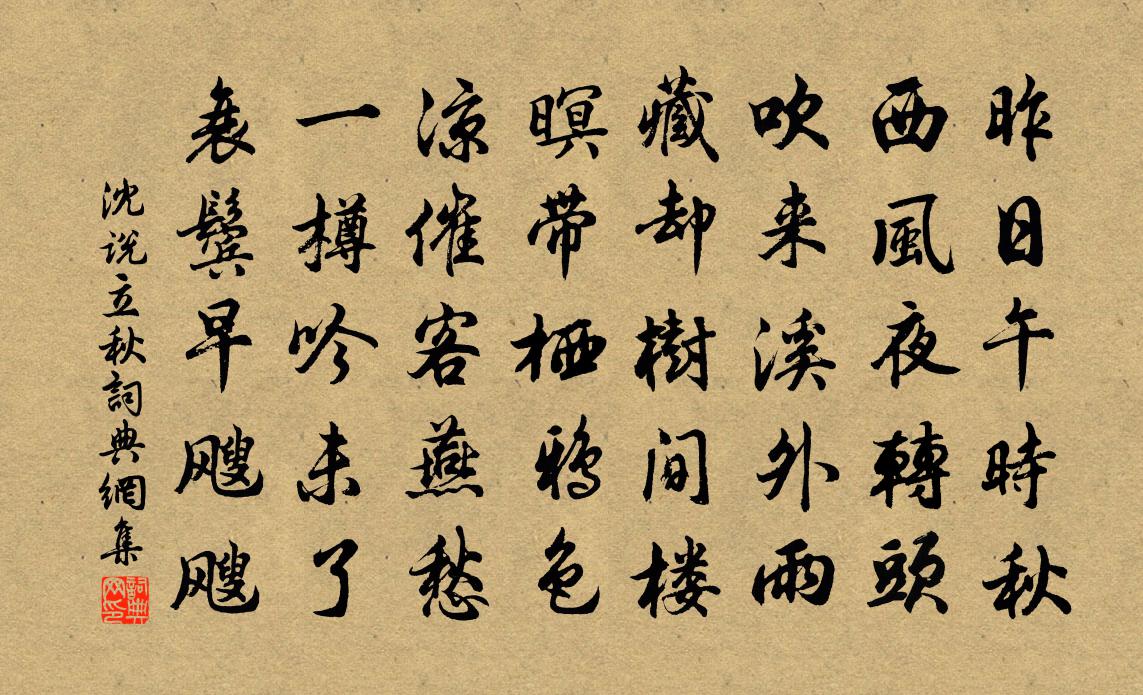 昨日午時秋
西風夜轉頭
吹来溪外雨
藏却樹間楼
暝帶栖鴉色
凉催客燕愁
一樽吟未了
衰鬢早颼颼
沈説立秋詞典網集
詞典網印